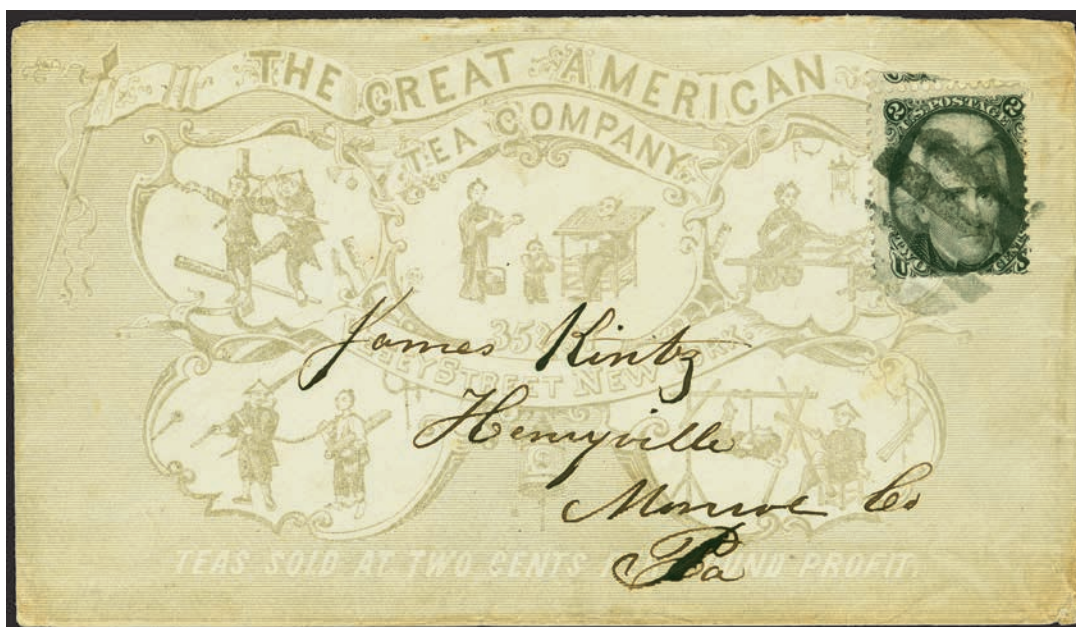 THE GREAT AMERICAN
TEA COMPANY
2 U.S. POSTAGE 2
TWO CENTS
U S
35
VESEY STREET NEW YORK
James Kintz
Henryville
Monroe Co
Pa
TEAS SOLD AT TWO CENTS POUND PROFIT.